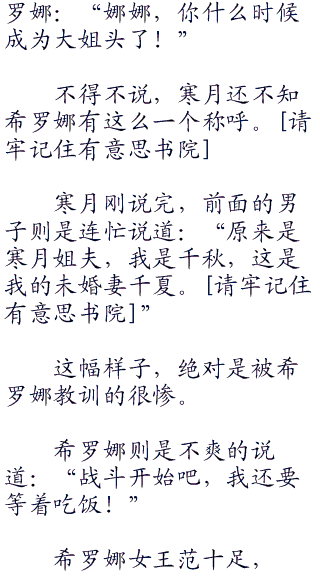 罗娜：“娜娜，你什么时候
成为大姐头了！”
不得不说，寒月还不知
希罗娜有这么一个称呼。[请
牢记住有意思书院]
寒月刚说完，前面的男
子则是连忙说道：“原来是
寒月姐夫，我是千秋，这是
我的未婚妻千夏。[请牢记住
有意思书院]”
这幅样子，绝对是被希
罗娜教训的很惨。
希罗娜则是不爽的说
道：“战斗开始吧，我还要
等着吃饭！”
希罗娜女王范十足，